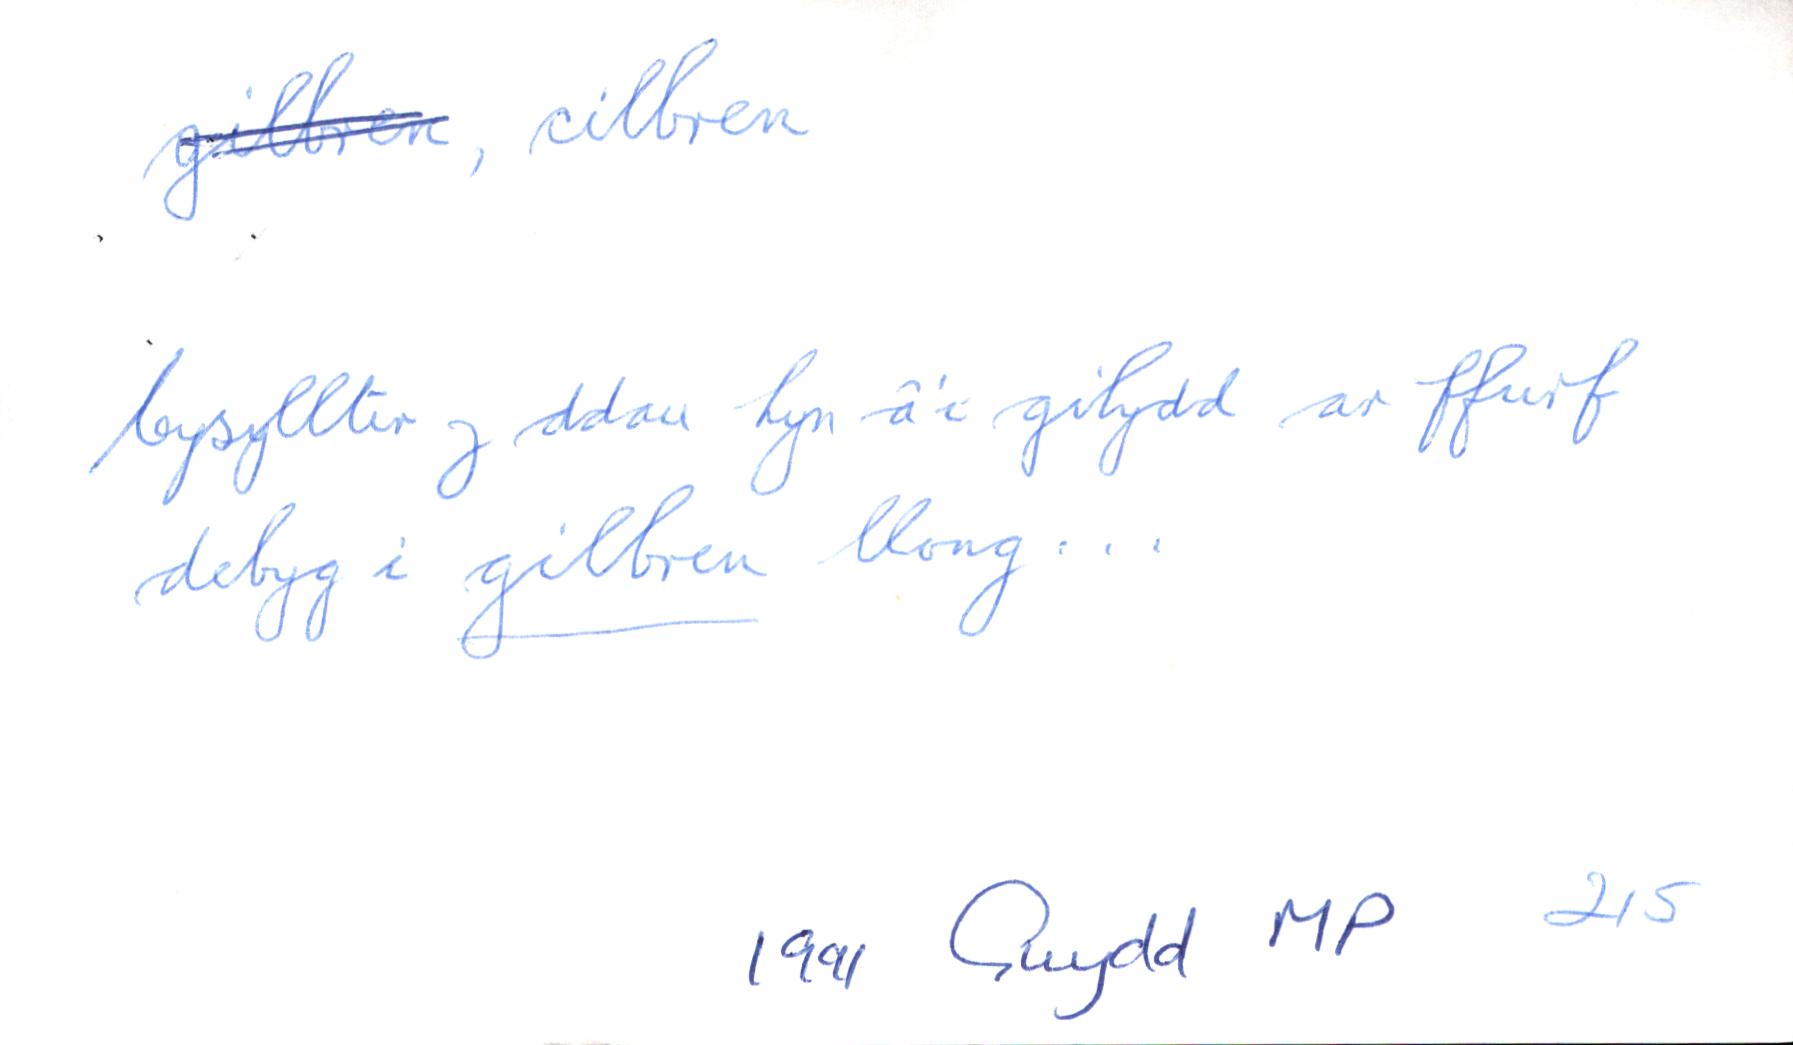 gilbren, cilbren
bysylltir y ddau hyn â'i gilydd ar ffurf
debyg i gilbren llong...
1991 Gwydd MP 215